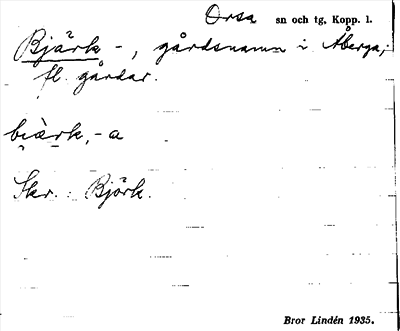 Orsa sn och tg, Kopp. l.
Bjärk -, gårdsnamn i Åberga,
fl. gårdar.
bi̯ärk, -a
Skr.: Björk.
Bror Lindén 1935.